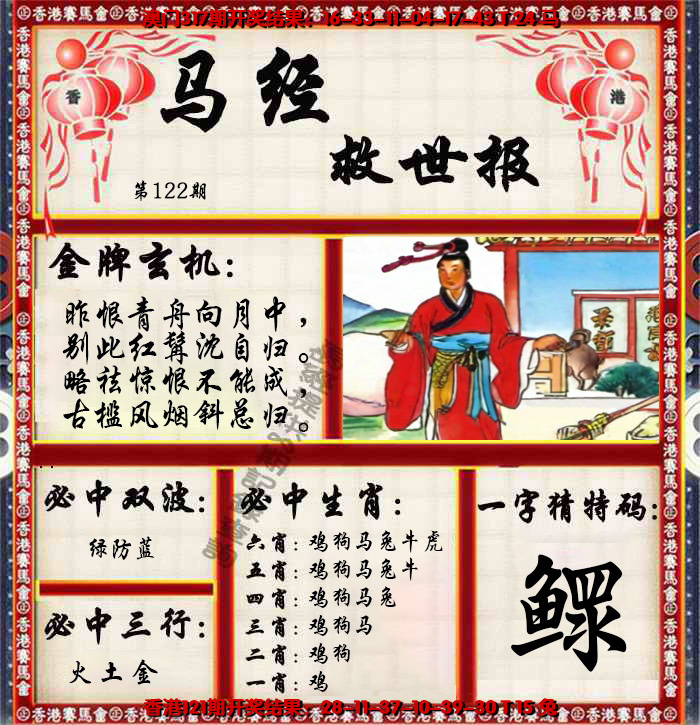 澳门317期开奖结果：16-33-11-04-17-43 T 24 马
香 港
马经
救世报
第122期
金牌玄机：
昨恨青舟向月中，
别此红鬂沈自归。
略祛惊恨不能成，
古槛风烟斜总归。
必中双波：
绿防蓝
必中三行：
火土金
必中生肖：
六肖：鸡狗马兔牛虎
五肖：鸡狗马兔牛
四肖：鸡狗马兔
三肖：鸡狗马
二肖：鸡狗
一肖：鸡
一字猜特码：
鳏
香港121期开奖结果：28-11-37-10-39-30 T 15 兔
香港賽馬會